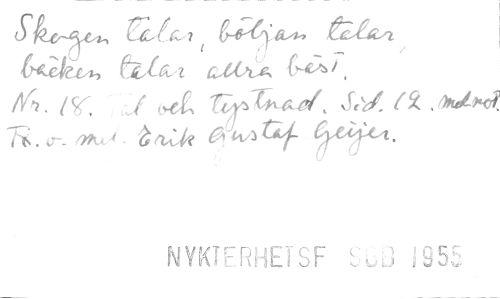 Skogen talar, böljan talar,
bäcken talar allra bäst.
Nr. 18. Tal och tystnad. Sid. 12. med not.
Tx. o. mel. Erik Gustaf Geijer.
NYKTERHETSF SGB 1955